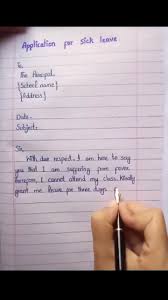 Application for sick leave
To
The Principal,
(School name)
(Address)
Date -
Subject -
Sir,
With due respect, I am here to say
you that I am suffering from fever
therefore, I cannot attend my class. Kindly
grant me leave for three days.